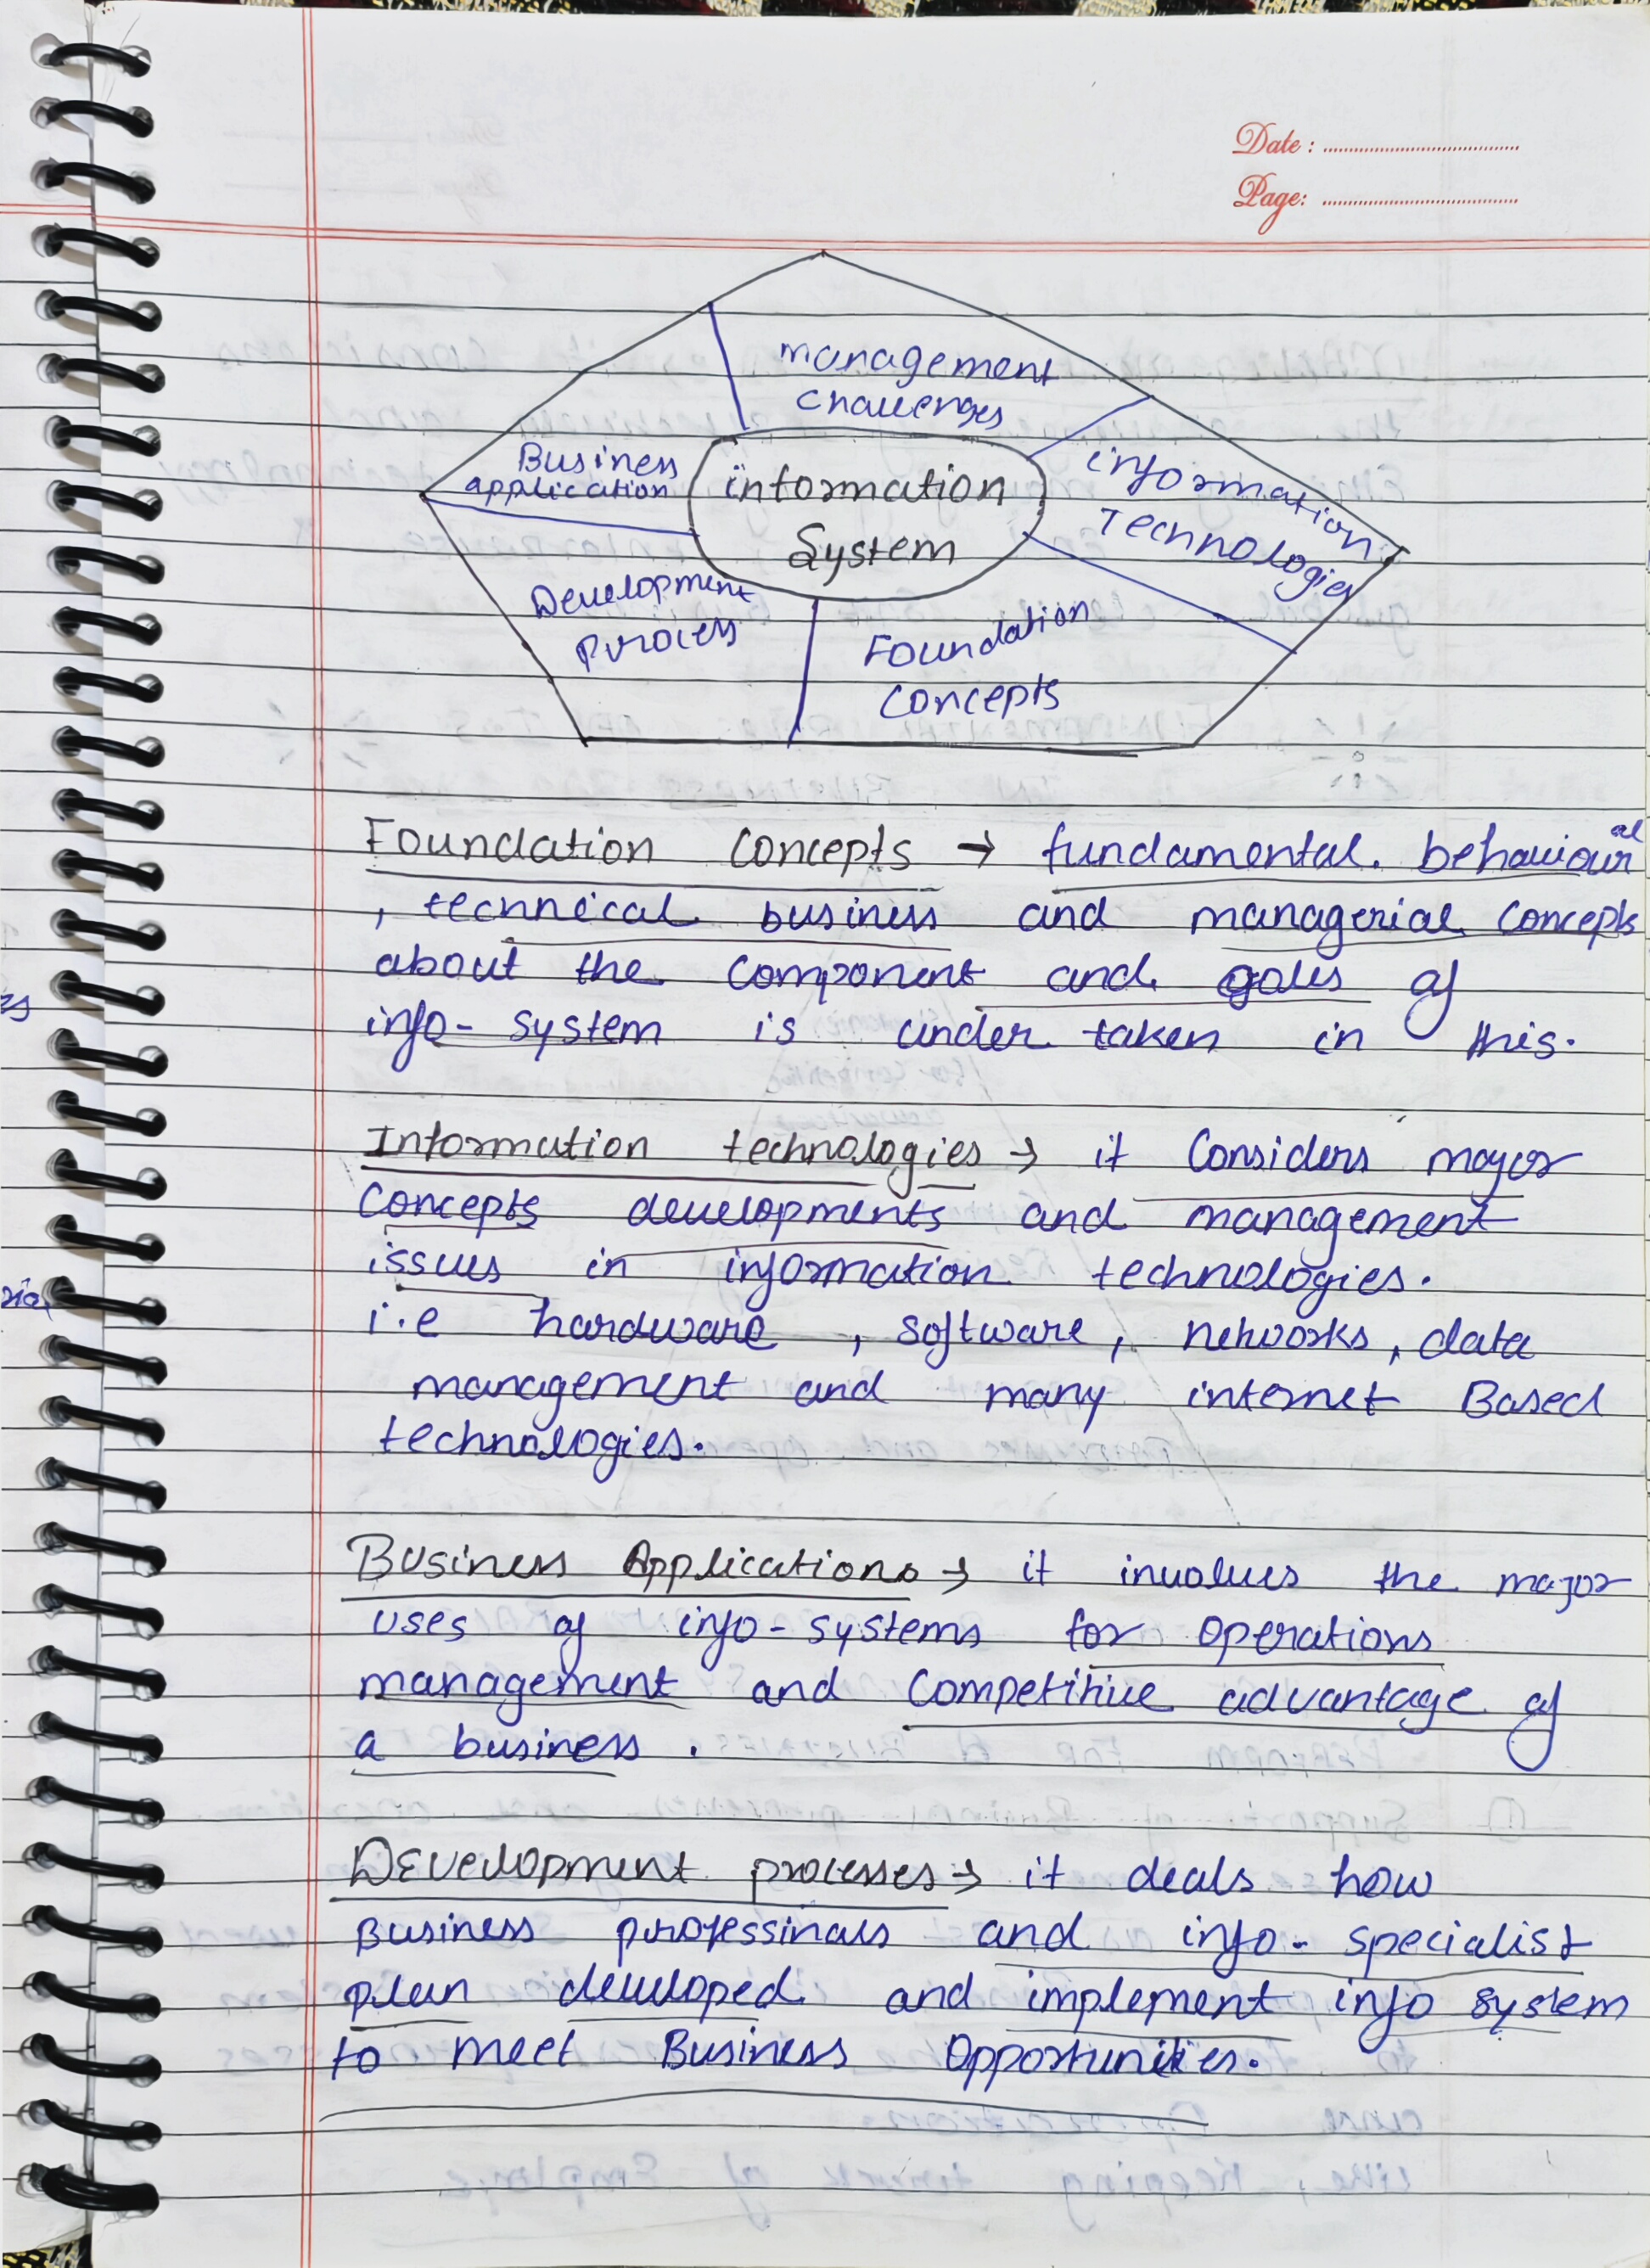 Date :
Page:
management
challenges
Business
application
information
System
information
Technologies
Development
process
Foundation
concepts
Foundation concepts → fundamental. behavioural
, technical business and managerial concepts
about the component and goles of
info- system is under taken in this.
Information technologies → it Considers mayor
concepts developments and management
issues in information technologies.
i.e hardware , software, networks, data
management and many internet Based
technologies.
Business Applications → it involves the major
uses of info-systems for operations
management and Competitive advantage of
a business .
Development processes → it deals how
Business professinals and info- specialist
plan developed and implement info system
to meet Business Opportunities.